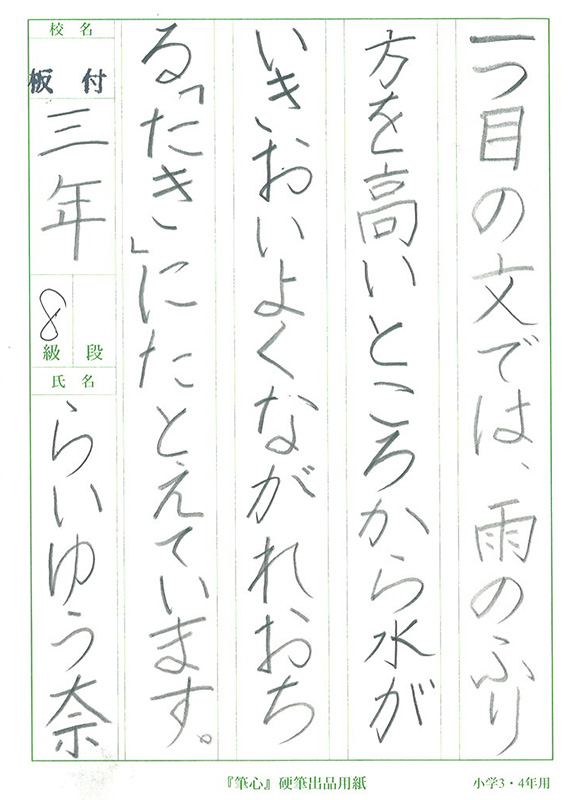 一つ目の文では、雨のふり
方を高いところから水が
いきおいよくながれおち
る「たき」にたとえています。
校名
板付
三年
8
級 段
氏名
らいゆう奈
『筆心』硬筆出品用紙
小学3・4年用